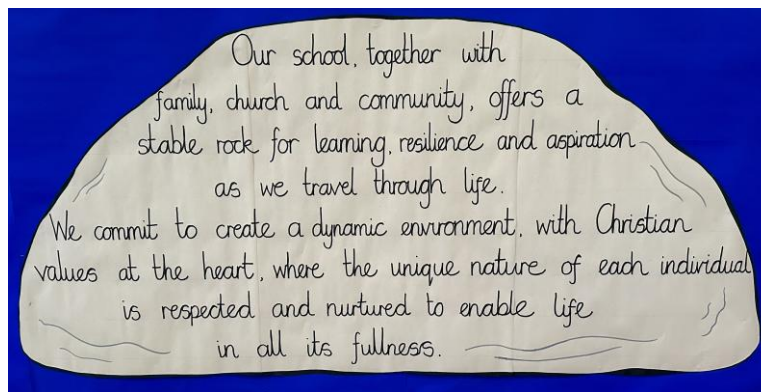 Our school, together with
family, church and community, offers a
stable rock for learning, resilience and aspiration
as we travel through life.
We commit to create a dynamic environment, with Christian
values at the heart, where the unique nature of each individual
is respected and nurtured to enable life
in all its fullness.